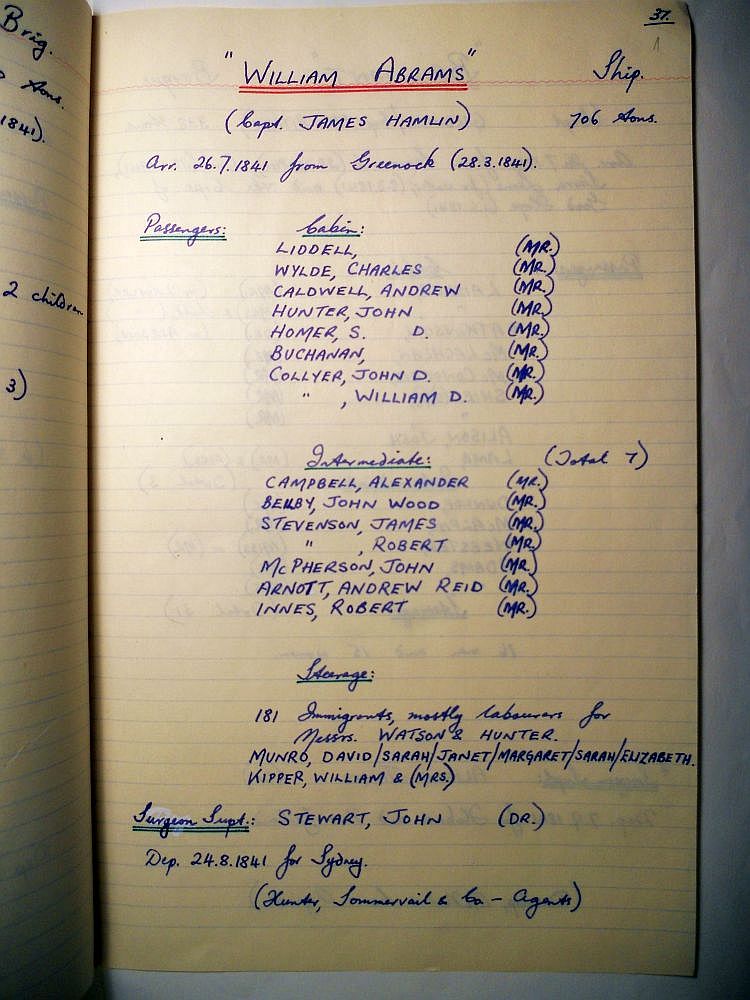 37.
1
"WILLIAM ABRAMS" Ship.
(Capt. JAMES HAMLIN) 706 tons.
Arr. 26.7.1841 from Greenock (28.3.1841).
Passengers: Cabin:
LIDDELL, (MR.)
WYLDE, CHARLES (MR.)
CALDWELL, ANDREW (MR.)
HUNTER, JOHN (MR.)
HOMER, S. D. (MR.)
BUCHANAN, (MR.)
COLLYER, JOHN D. (MR.)
" , WILLIAM D. (MR.)
Intermediate: (Total 7)
CAMPBELL, ALEXANDER (MR.)
BEILBY, JOHN WOOD (MR.)
STEVENSON, JAMES (MR.)
" , ROBERT (MR.)
McPHERSON, JOHN (MR.)
ARNOTT, ANDREW REID (MR.)
INNES, ROBERT (MR.)
Steerage:
181 Immigrants, mostly labourers for
Messrs. WATSON & HUNTER.
MUNRO, DAVID/SARAH/JANET/MARGARET/SARAH/ELIZABETH.
KIPPER, WILLIAM & (MRS.)
Surgeon Supt.: STEWART, JOHN (DR.)
Dep. 24.8.1841 for Sydney.
(Hunter, Sommervail & Co - Agents)
Brig.
tons.
1841).
2 children
3)